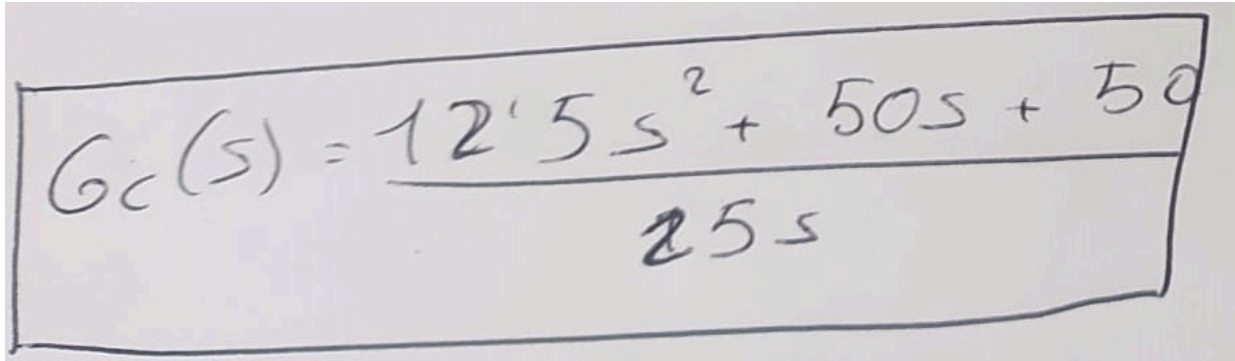 Gc(s) = 12'5s² + 50s + 50
25s